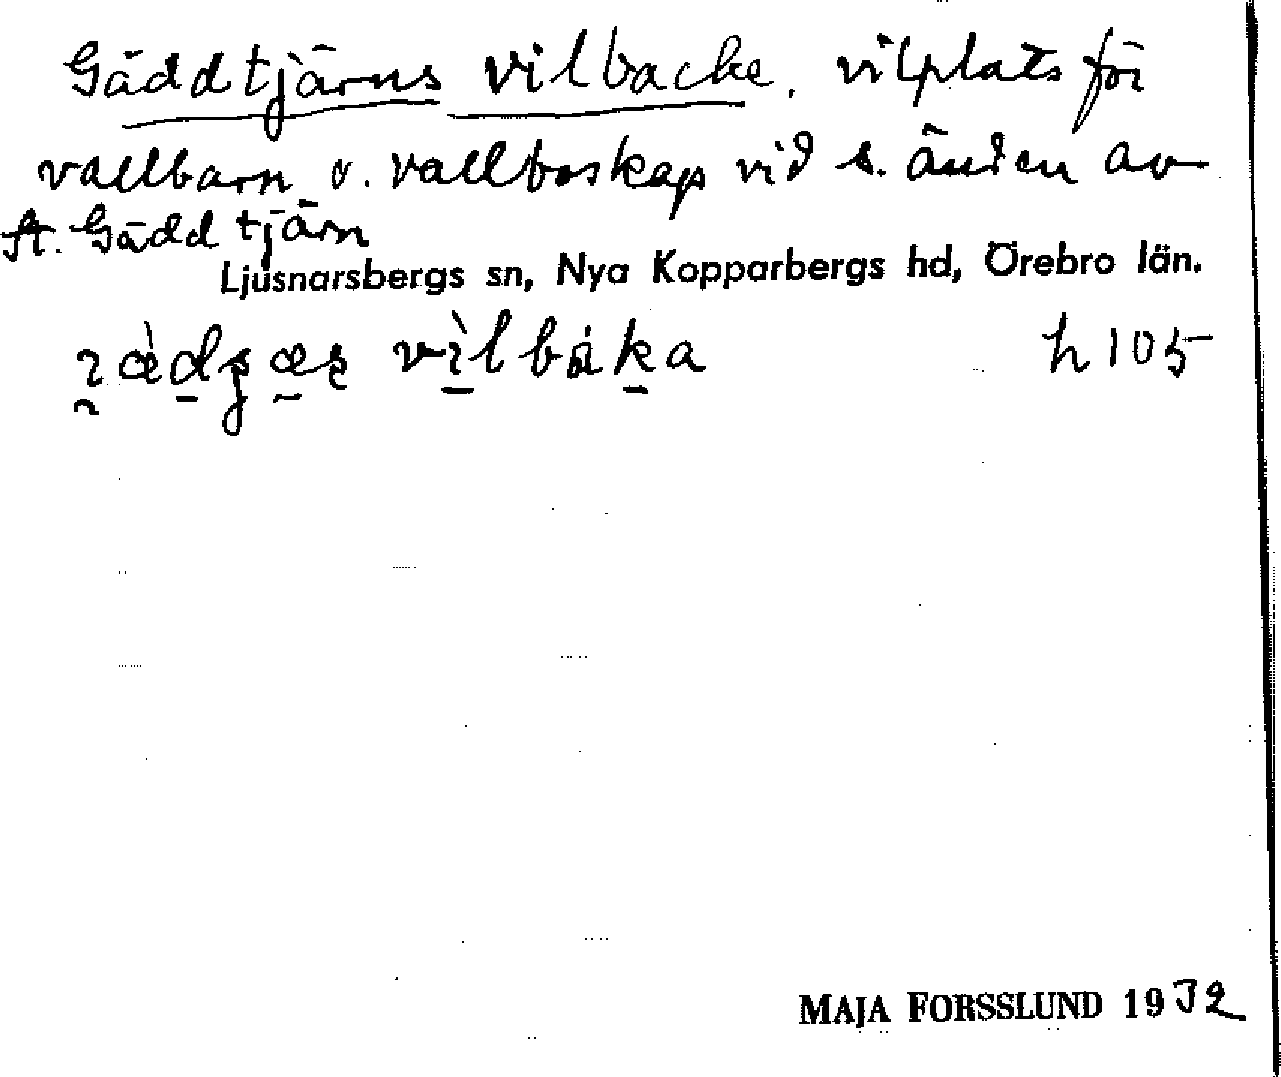 Gäddtjärns vilbacke. vilplats för
vallbarn o. vallboskap vid s. änden av
St. Gäddtjärn
Ljusnarsbergs sn, Nya Kopparbergs hd, Örebro län.
h 105
MAJA FORSSLUND 1932